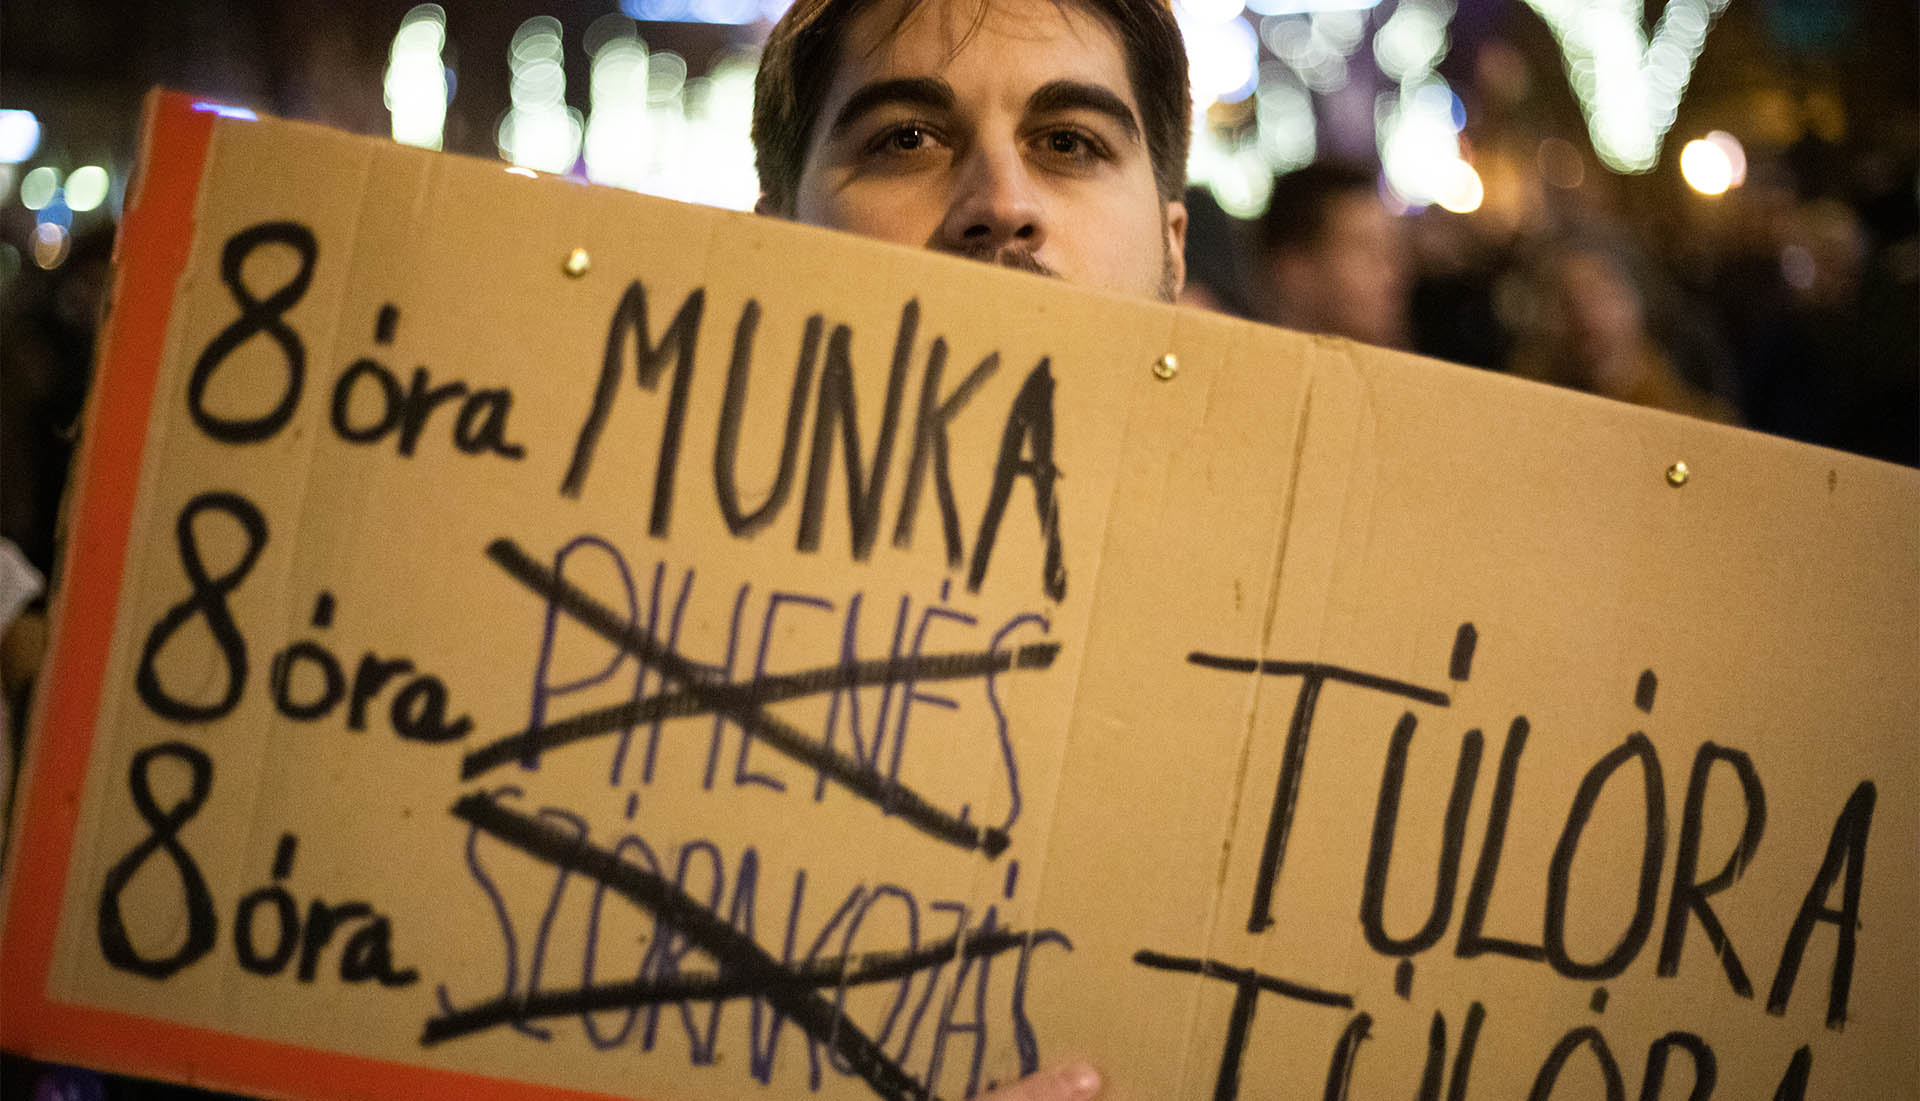 8 óra MUNKA
8 óra PIHENÉS TÚLÓRA
8 óra SZÓRAKOZÁS TÚLÓRA